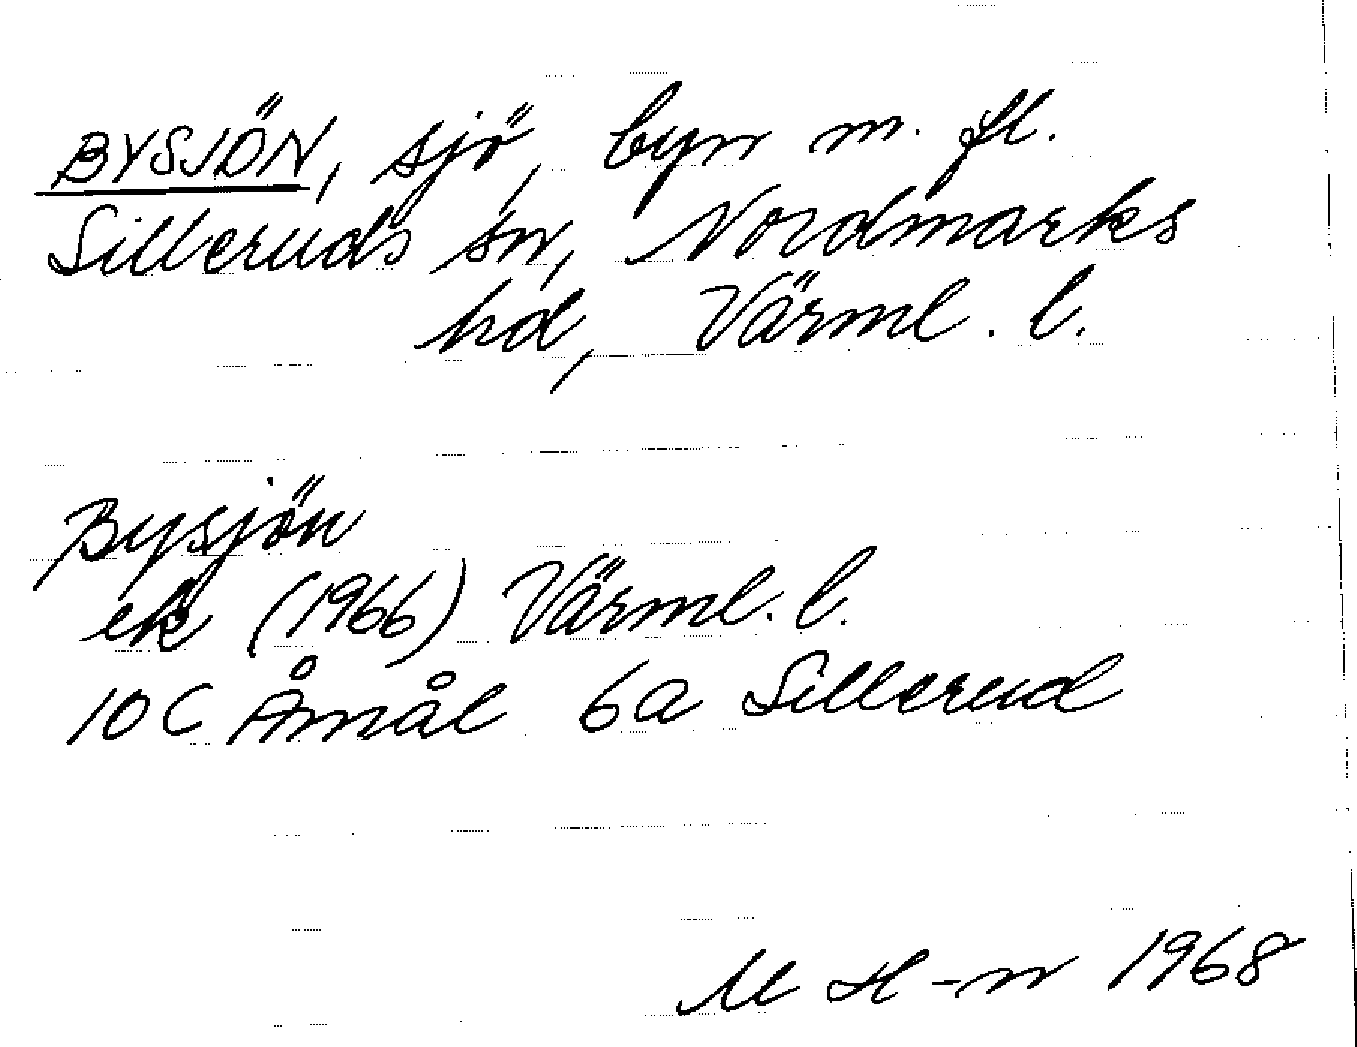 BYSJÖN, sjö, byn m. fl.
Silleruds sn, Nordmarks
hd, Värml. l.
Bysjön
ek (1966) Värml. l.
10 C Åmål 6a Sillerud
M H-n 1968